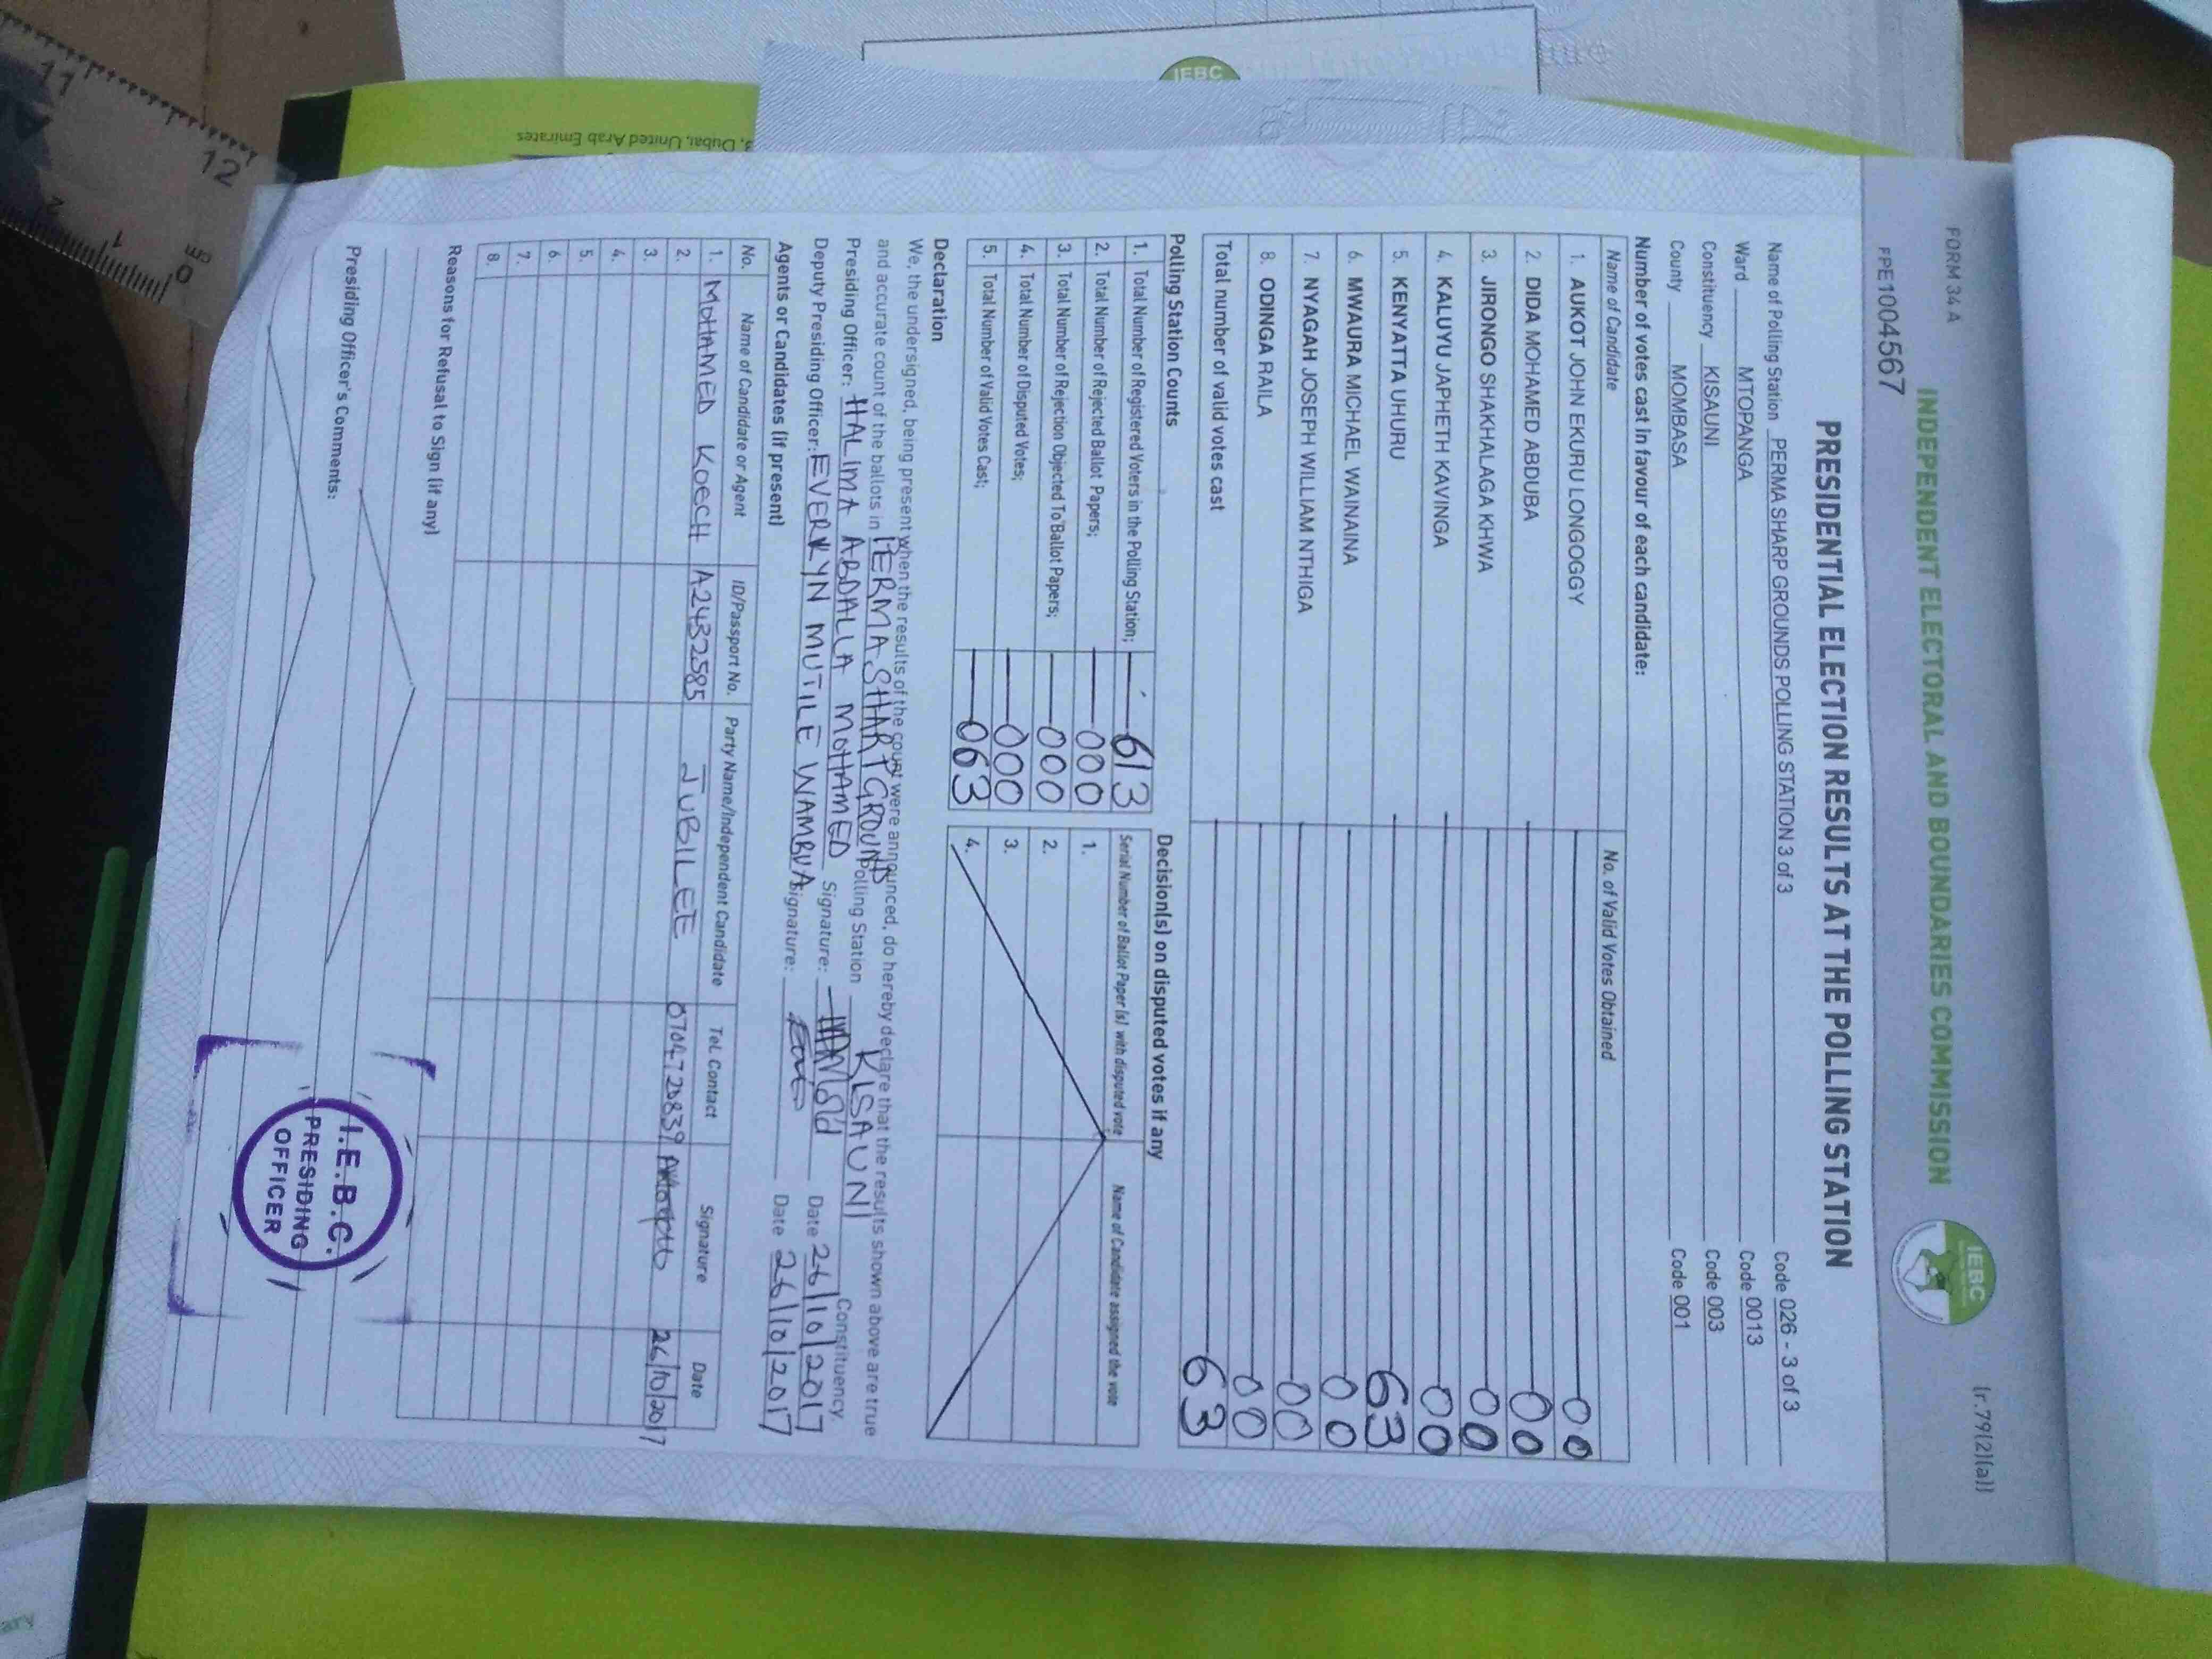 FORM 34 A
(r.79(2)(a))
INDEPENDENT ELECTORAL AND BOUNDARIES COMMISSION
IEBC
FPE1004567
PRESIDENTIAL ELECTION RESULTS AT THE POLLING STATION
Name of Polling Station PERMA SHARP GROUNDS POLLING STATION 3 of 3 Code 026 - 3 of 3
Ward MTOPANGA Code 0013
Constituency KISAUNI Code 003
County MOMBASA Code 001
Number of votes cast in favour of each candidate:
Name of Candidate No. of Valid Votes Obtained
1. AUKOT JOHN EKURU LONGOGGY 00
2. DIDA MOHAMED ABDUBA 00
3. JIRONGO SHAKHALAGA KHWA 00
4. KALUYU JAPHETH KAVINGA 00
5. KENYATTA UHURU 63
6. MWAURA MICHAEL WAINAINA 00
7. NYAGAH JOSEPH WILLIAM NTHIGA 00
8. ODINGA RAILA 00
Total number of valid votes cast 63
Polling Station Counts
1. Total Number of Registered Voters in the Polling Station; 613
2. Total Number of Rejected Ballot Papers; 000
3. Total Number of Rejection Objected To Ballot Papers; 000
4. Total Number of Disputed Votes; 000
5. Total Number of Valid Votes Cast; 063
Decision(s) on disputed votes if any
Serial Number of Ballot Paper (s) with disputed vote Name of Candidate assigned the vote
1.
2.
3.
4.
Declaration
We, the undersigned, being present when the results of the count were announced, do hereby declare that the results shown above are true
and accurate count of the ballots in PERMA SHARP GROUNDS Polling Station KISAUNI Constituency
Presiding Officer: HALIMA ABDALLA MOHAMED Signature: Date 26/10/2017
Deputy Presiding Officer: EVERLYN MUTILE WAMBUA Signature: Date 26/10/2017
Agents or Candidates (if present)
No. Name of Candidate or Agent ID/Passport No. Party Name/Independent Candidate Tel. Contact Signature Date
1. MOHAMED KOECH A2432585 JUBILEE 0704720839 26/10/2017
2.
3.
4.
5.
6.
7.
8.
Reasons for Refusal to Sign (if any)
Presiding Officer's Comments:
I.E.B.C.
PRESIDING
OFFICER
IEBC
Dubai, United Arab Emirates
11
12
0
cm
1
2